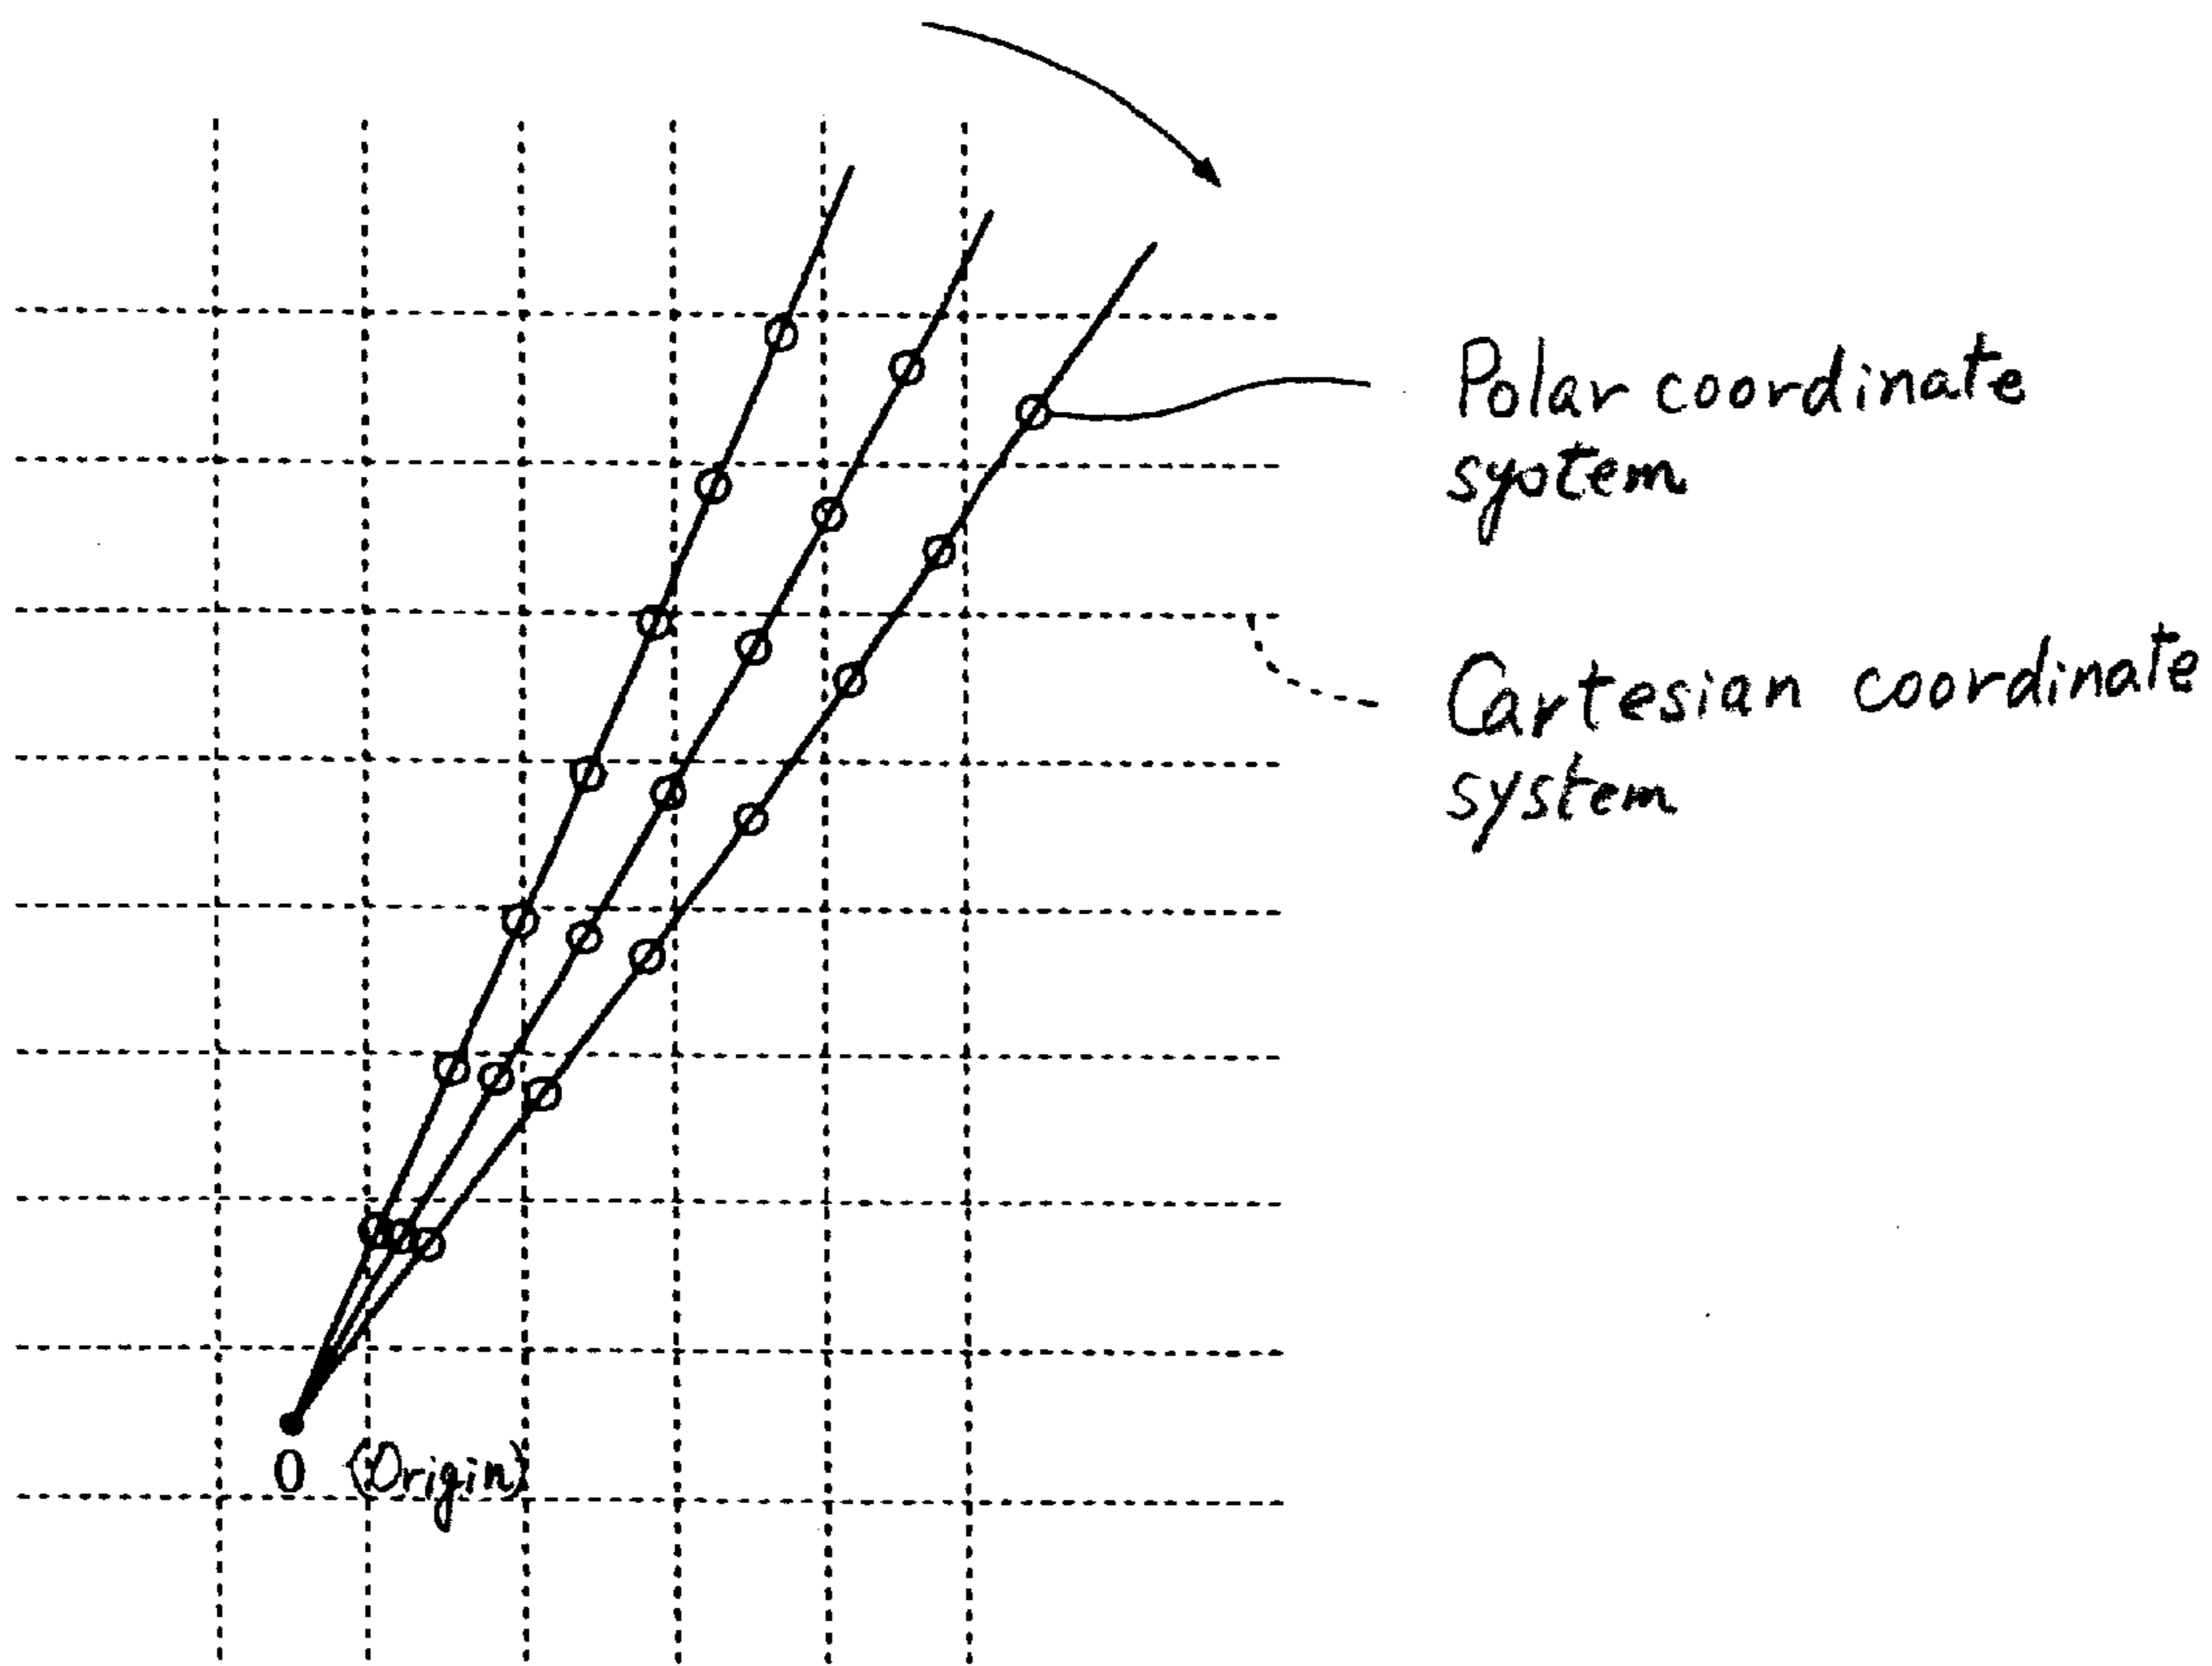 Polar coordinate
system
Cartesian coordinate
system
0 (Origin)